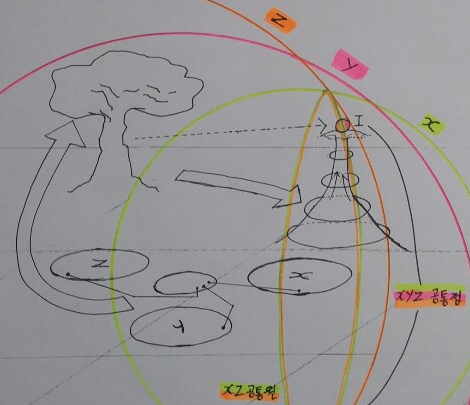 Z
Y
X
I
Z
X
Y
XYZ 공통점
XZ 공통원